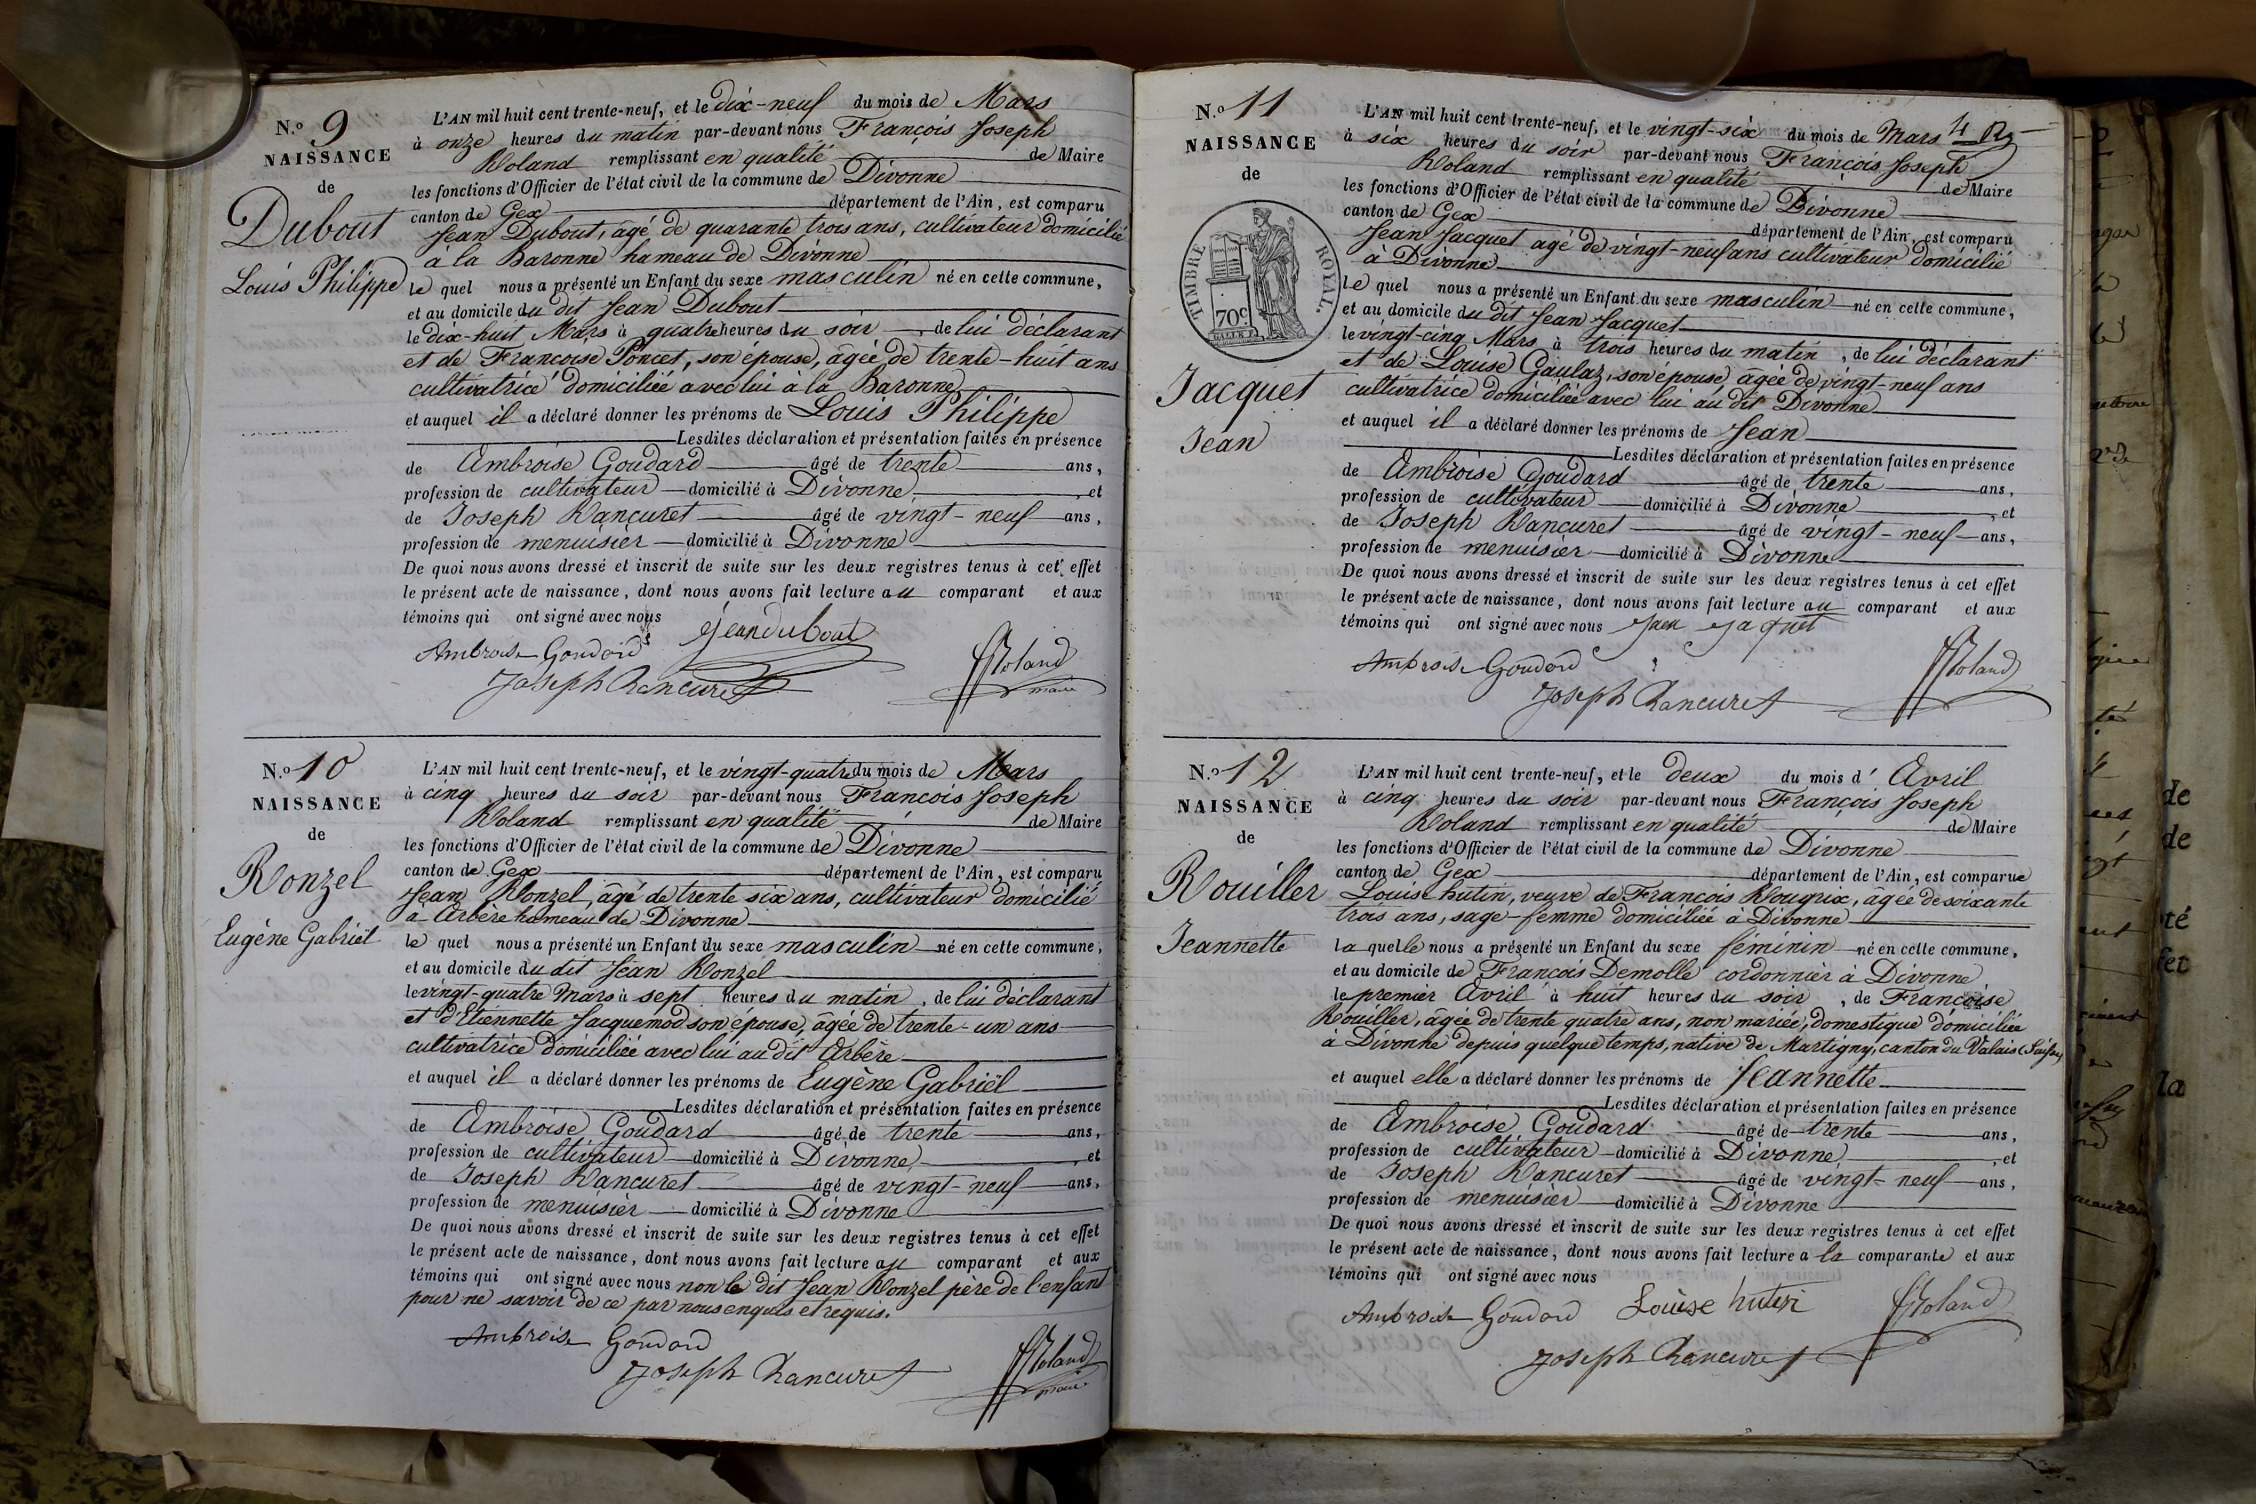 N.o 9
NAISSANCE
de
Dubout
Louis Philippe
L'AN mil huit cent trente-neuf, et le dix-neuf du mois de Mars
à onze heures du matin par-devant nous François Joseph
Roland remplissant en qualité de Maire
les fonctions d'Officier de l'état civil de la commune de Divonne
canton de Gex département de l'Ain, est comparu
Jean Dubout, âgé de quarante trois ans, cultivateur domicilié
à la Baronne hameau de Divonne
le quel nous a présenté un Enfant du sexe masculin né en cette commune,
et au domicile du dit Jean Dubout
le dix-huit Mars à quatre heures du soir, de lui déclarant
et de Francoise Poncet, son épouse, âgée de trente-huit ans
cultivatrice domiciliée avec lui a la Baronne
et auquel il a déclaré donner les prénoms de Louis Philippe
Lesdites déclaration et présentation faites en présence
de Ambroise Goudard âgé de trente ans,
profession de cultivateur domicilié à Divonne, et
de Joseph Rançuret âgé de vingt-neuf ans,
profession de menuisier domicilié à Divonne
De quoi nous avons dressé et inscrit de suite sur les deux registres tenus à cet effet
le présent acte de naissance, dont nous avons fait lecture au comparant et aux
témoins qui ont signé avec nous Jean dubout
Ambroise Goudard
Joseph Rancuret
Roland
maire
N.o 10
NAISSANCE
de
Ronzel
Eugène Gabriël
L'AN mil huit cent trente-neuf, et le vingt-quatre du mois de Mars
à cinq heures du soir par-devant nous François Joseph
Roland remplissant en qualité de Maire
les fonctions d'Officier de l'état civil de la commune de Divonne
canton de Gex département de l'Ain, est comparu
Jean Ronzel, âgé de trente six ans, cultivateur domicilié
à Arbère hameau de Divonne
le quel nous a présenté un Enfant du sexe masculin né en cette commune,
et au domicile du dit Jean Ronzel
le vingt-quatre Mars à sept heures du matin, de lui déclarant
et d'Etiennette Jacquemod son épouse, âgée de trente-un ans
cultivatrice domiciliée avec lui au dit Arbère
et auquel il a déclaré donner les prénoms de Eugène Gabriël
Lesdites déclaration et présentation faites en présence
de Ambroise Goudard âgé de trente ans,
profession de cultivateur domicilié à Divonne, et
de Joseph Rançuret âgé de vingt-neuf ans,
profession de menuisier domicilié à Divonne
De quoi nous avons dressé et inscrit de suite sur les deux registres tenus à cet effet
le présent acte de naissance, dont nous avons fait lecture au comparant et aux
témoins qui ont signé avec nous non le dit Jean Ronzel père de l'enfant
pour ne savoir de ce par nous enquis et requis.
Ambroise Goudard
Joseph Rancuret
Roland
maire
N.o 11
NAISSANCE
de
TIMBRE ROYAL.
70c
Jacquet
Jean
L'AN mil huit cent trente-neuf, et le vingt-six du mois de Mars
à six heures du soir par-devant nous François Joseph
Roland remplissant en qualité de Maire
les fonctions d'Officier de l'état civil de la commune de Divonne
canton de Gex département de l'Ain, est comparu
Jean Jacquet agé de vingt-neuf ans cultivateur domicilié
à Divonne
le quel nous a présenté un Enfant du sexe masculin né en cette commune,
et au domicile du dit Jean Jacquet
le vingt-cinq Mars à trois heures du matin, de lui déclarant
et de Louise Gaulaz, son épouse, âgée de vingt-neuf ans
cultivatrice domiciliée avec lui au dit Divonne
et auquel il a déclaré donner les prénoms de Jean
Lesdites déclaration et présentation faites en présence
de Ambroise Goudard âgé de trente ans,
profession de cultivateur domicilié à Divonne, et
de Joseph Rancuret âgé de vingt-neuf ans,
profession de menuisier domicilié à Divonne
De quoi nous avons dressé et inscrit de suite sur les deux registres tenus à cet effet
le présent acte de naissance, dont nous avons fait lecture au comparant et aux
témoins qui ont signé avec nous Jaen Jaquet
Ambroise Goudard
Joseph Rancuret
Roland
N.o 12
NAISSANCE
de
Rouiller
Jeannette
L'AN mil huit cent trente-neuf, et le deux du mois d'Avril
à cinq heures du soir par-devant nous François Joseph
Roland remplissant en qualité de Maire
les fonctions d'Officier de l'état civil de la commune de Divonne
canton de Gex département de l'Ain, est comparue
Louise hutin, veuve de François Rougrix, âgée de soixante
trois ans, sage-femme domiciliée à Divonne
la quelle nous a présenté un Enfant du sexe féminin né en cette commune,
et au domicile de François Demolle cordonnier à Divonne
le premier Avril à huit heures du soir, de Françoise
Rouiller, âgée de trente quatre ans, non mariée, domestique domiciliée
à Divonne depuis quelque temps, native de Martigny, canton du Valais
et auquel elle a déclaré donner les prénoms de Jeannette
Lesdites déclaration et présentation faites en présence
de Ambroise Goudard âgé de trente ans,
profession de cultivateur domicilié à Divonne, et
de Joseph Rancuret âgé de vingt-neuf ans,
profession de menuisier domicilié à Divonne
De quoi nous avons dressé et inscrit de suite sur les deux registres tenus à cet effet
le présent acte de naissance, dont nous avons fait lecture a la comparante et aux
témoins qui ont signé avec nous
Ambroise Goudard Louise hutin Roland
Joseph Rancuret
de
de
té
fet
la